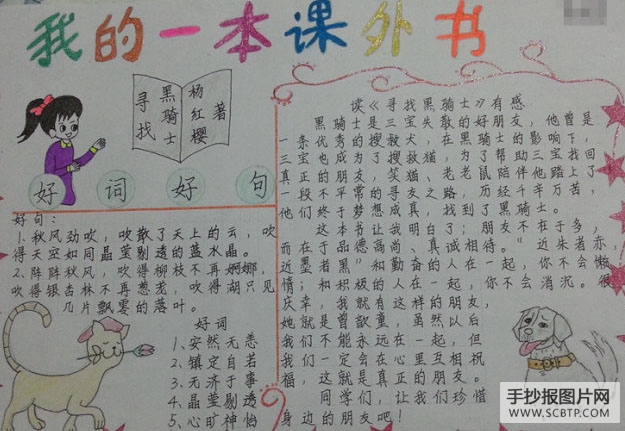 我的一本课外书
寻找
黑骑士
杨红樱
著
好词好句
好句：
1、秋风劲吹，吹散了天上的云，吹
得天空如同晶莹剔透的蓝水晶。
2、阵阵秋风，吹得柳枝不再婀娜，
吹得银杏林不再葱茏，吹得湖只见
几片飘零的落叶。
好词
1、安然无恙
2、镇定自若
3、无济于事
4、晶莹剔透
5、心旷神怡
读《寻找黑骑士》有感
黑骑士是三宝失散的好朋友，他曾是
一条优秀的搜救犬，在黑骑士的影响下，
三宝也成为了搜救猫，为了帮助三宝找回
真正的朋友，笑猫、老老鼠陪伴他踏上了
一段不平常的寻友之路，历经千辛万苦，
他们终于梦想成真，找到了黑骑士。
这本书让我明白了；朋友不在于多，
而在于品德高尚、真诚相待。”近朱者赤，
近墨者黑”和勤奋的人在一起，你不会懒
惰；和积极的人在一起，你不会消沉。很
庆幸，我就有这样的朋友，
她就是曾歆童，虽然以后
我们不能永远在一起，但
我们一定会在心里互相祝
福，这就是真正的朋友。
同学们，让我们珍惜
身边的朋友吧！
手抄报图片网
WWW.SCBTP.COM